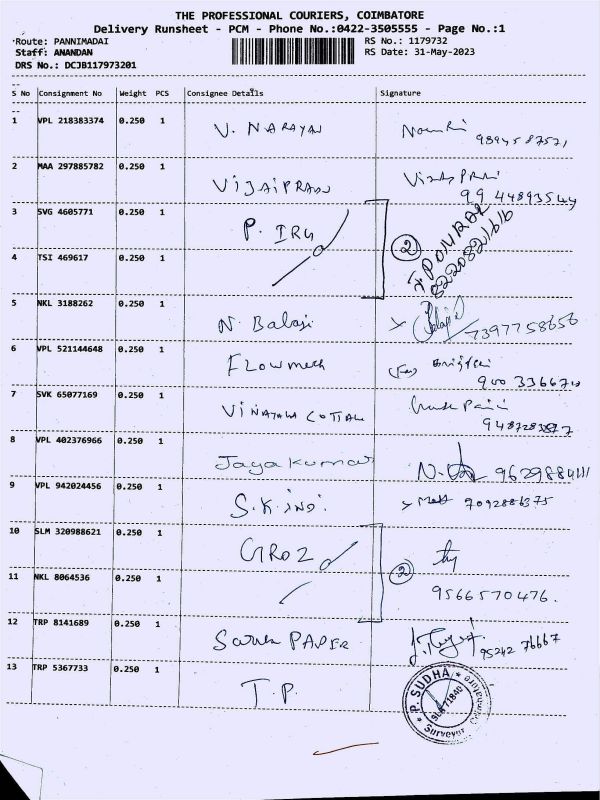 THE PROFESSIONAL COURIERS, COIMBATORE
Delivery Runsheet - PCM - Phone No.:0422-3505555 - Page No.:1
Route: PANNIMADAI RS No.: 1179732
Staff: ANANDAN RS Date: 31-May-2023
DRS No.: DCJB117973201
S No Consignment No Weight PCS Consignee Details Signature
1 VPL 218383374 0.250 1 V. NARAYAN
2 MAA 297885782 0.250 1 VIJAIPRADU
99 44893544
3 SVG 4605771 0.250 1 P. IRU
2
4 TSI 469617 0.250 1
8220821616
5 NKL 3188262 0.250 1 N. Balaji Balaji
7397758656
6 VPL 521144648 0.250 1 Flowmech
7 SVK 65077169 0.250 1 VINAYAGA COTTAGE
8 VPL 402376966 0.250 1 Jayakumar
9 VPL 942024456 0.250 1 S.K. ind. 7092886375
10 SLM 320988621 0.250 1 GROZ
2
11 NKL 8064536 0.250 1 9566570476.
12 TRP 8141689 0.250 1 PAPER 95242 76667
13 TRP 5367733 0.250 1 T.P.
P. SUDHA
Surveyor